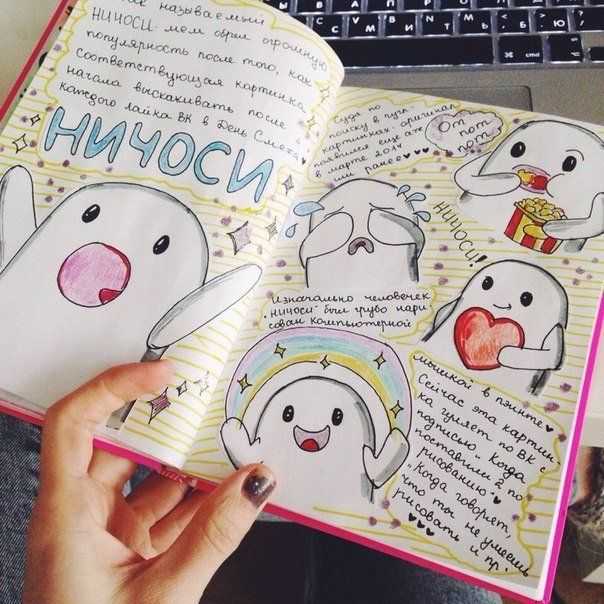 так называемый
НИЧОСИ. мем обрёл огромную
популярность после того, как
соответствующая картинка
начала выскакивать после
каждого лайка ВК в День Смеха
НИЧОСИ
Судя по
поиску в гугл-
картинках, оригинал
появился ещё аж
в марте 2014
или ранее
Ом
ном
ном
НИЧОСИ!
Изначально человечек
"ничоси" был грубо нари
сован компьютерной
мышкой в пэинте
Сейчас эта картин
ка гуляет по ВК с
подписью "Когда
поставили 2 по
рисованию",
"когда говорят,
что ты не умеешь
рисовать и пр.